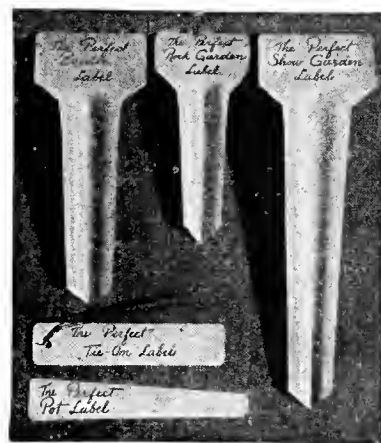 The Perfect
Label
The Perfect
Rock Garden
Label
The Perfect
Show Garden
Labels
The Perfect
Tie-On Labels
The Perfect
Pot Label